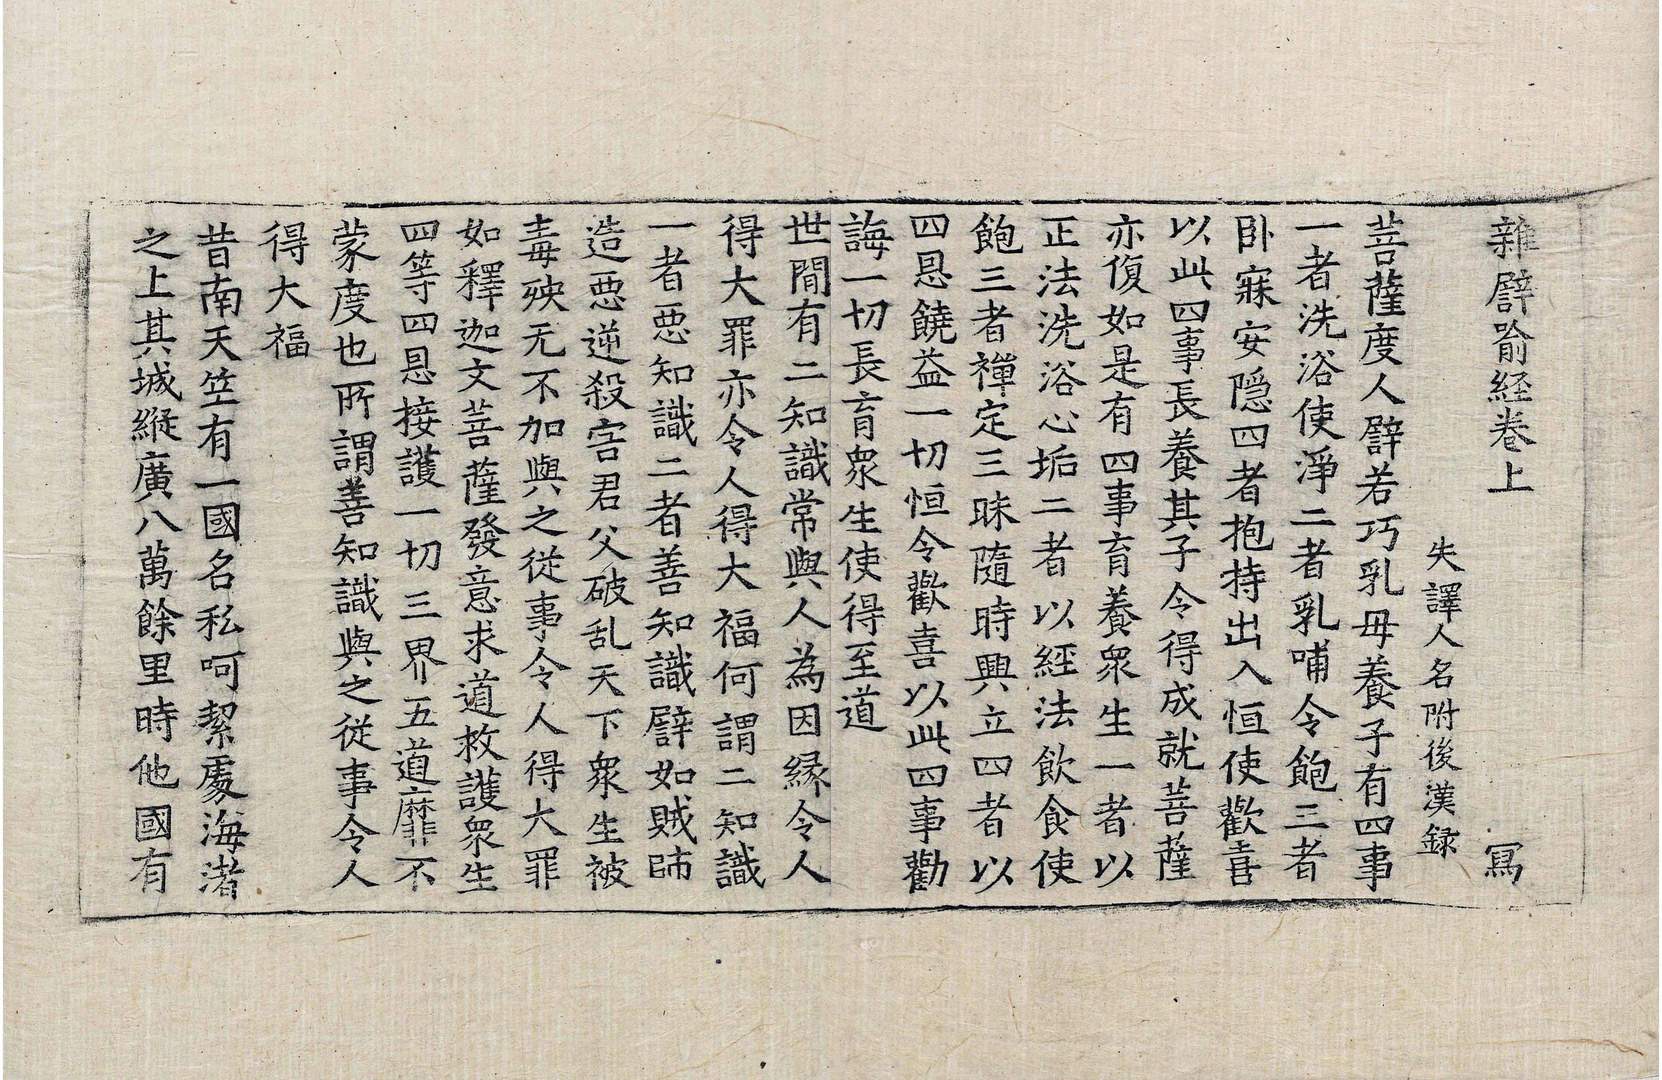 雜譬喻経卷上　寫
失譯人名附後漢録
菩薩度人譬若巧乳母養子有四事
一者洗浴使淨二者乳哺令飽三者
卧寐安隠四者抱持出入恒使歡喜
以此四事長養其子令得成就菩薩
亦復如是有四事育養衆生一者以
正法洗浴心垢二者以経法飲食使
飽三者禪定三昧隨時興立四者以
四恩饒益一切恒令歡喜以此四事勸
誨一切長育衆生使得至道
世間有二知識常與人為因緣令人
得大罪亦令人得大福何謂二知識
一者惡知識二者善知識譬如賊師
造惡逆殺害君父破乱天下衆生被
毒殃无不加與之從事令人得大罪
如釋迦文菩薩發意求道救護衆生
四等四恩接護一切三界五道靡不
蒙度也所謂善知識與之從事令人
得大福
昔南天竺有一國名私呵絜處海渚
之上其城縱廣八萬餘里時他國有